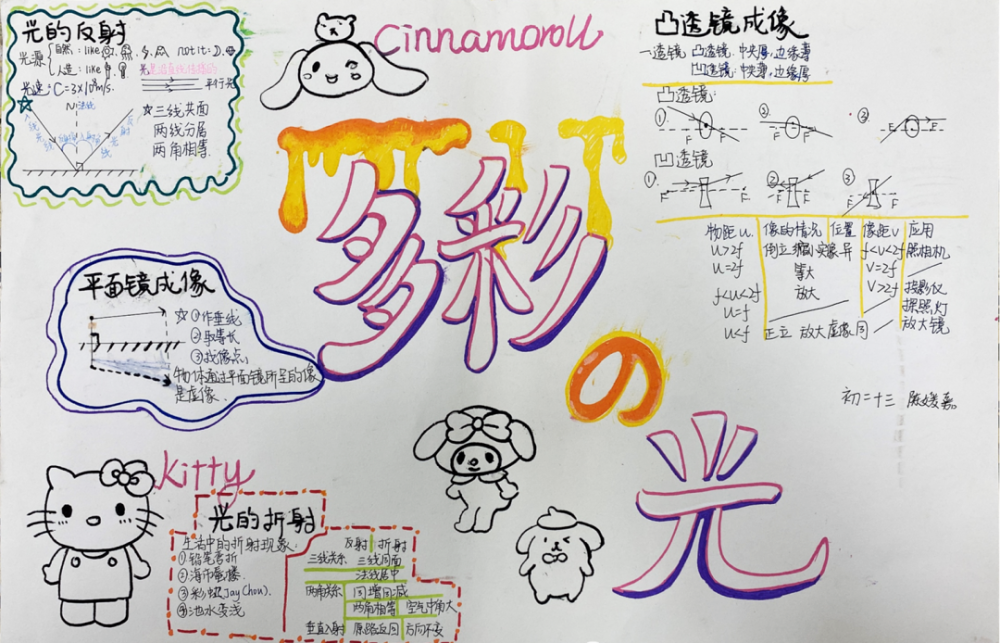 光的反射
光源 自然：like
not it：
人造：like
光是沿直线传播的
光速：C=3×10⁸m/s.
平行光
N 法线
☆三线共面
两线分居
两角相等.
Cinnamoroll
多彩の光
凸透镜成像
一透镜 凸透镜：中央厚，边缘薄
凹透镜：中央薄，边缘厚
凸透镜：
① ② ③
F F F F
凹透镜
① ② ③
F F F F
物距u. 像的情况 位置 像距v 应用
u>2f 倒立缩小实像 异 f<v<2f 照相机
u=2f 等大 V=2f
f<u<2f 放大 V>2f 投影仪
u=f 探照灯
u<f 正立 放大虚像 同 放大镜
初二十三
平面镜成像
☆①作垂线
②取等长
③找像点
物体通过平面镜所呈的像
是虚像.
kitty
光的折射
生活中的折射现象：
①铅笔弯折
②海市蜃楼
③彩虹(Jay Chou).
④池水变浅
反射 折射
三线关系 三线同面
法线居中
两角关系 同增同减
两角相等 空气中角大
垂直入射 原路返回 方向不变